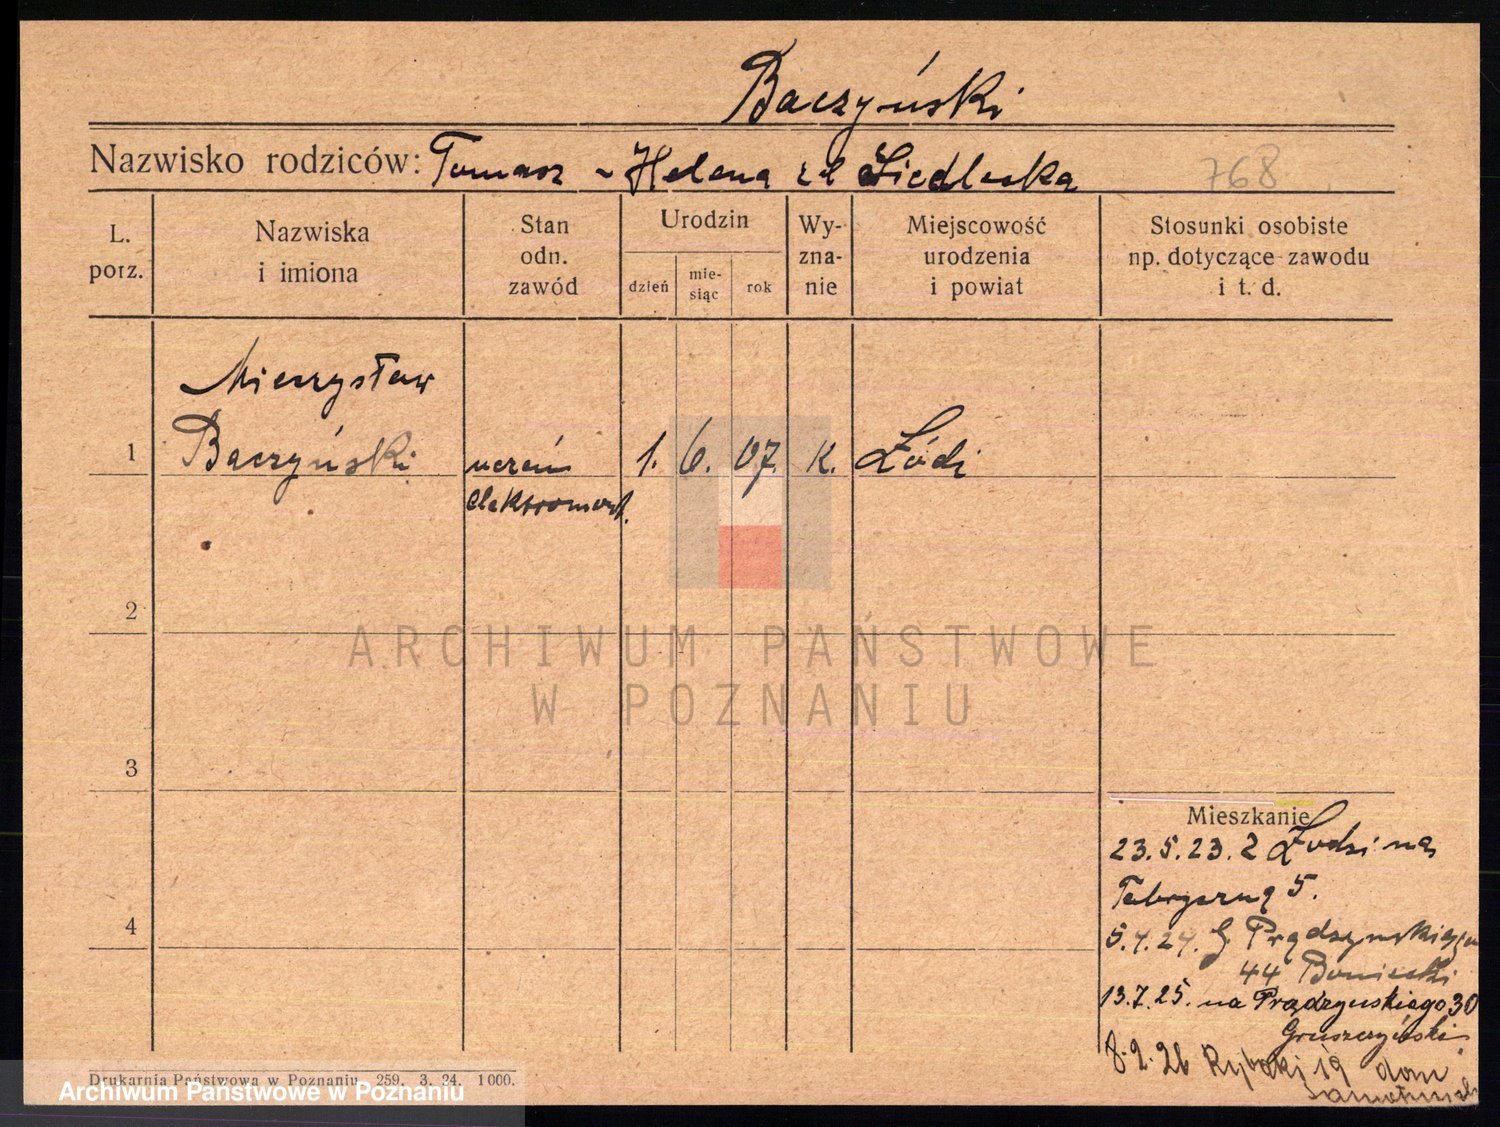 Baczyński
Nazwisko rodziców: Tomasz - Helena zd Siedlecka
768
L. porz.
Nazwiska i imiona
Stan odn. zawód
Urodzin
dzień
mie- siąc
rok
Wy- zna- nie
Miejscowość urodzenia i powiat
Stosunki osobiste np. dotyczące zawodu i t. d.
Mieczysław
1 Baczyński uczeń 1. 6. 07. K. Łódź
elektromont.
2
ARCHIWUM PAŃSTWOWE
W POZNANIU
3
Mieszkanie
23.5.23. z Łodzi na
Fabryczną 5.
4
5.4.24. G. Prądzyńskiego
44 Boniecki
13.7.25. na Prądzyńskiego 30
Gruszczyński
8.2.26 Rybaki 19 dom
Drukarnia Państwowa w Poznaniu 259. 3. 24. 1000.
Archiwum Państwowe w Poznaniu